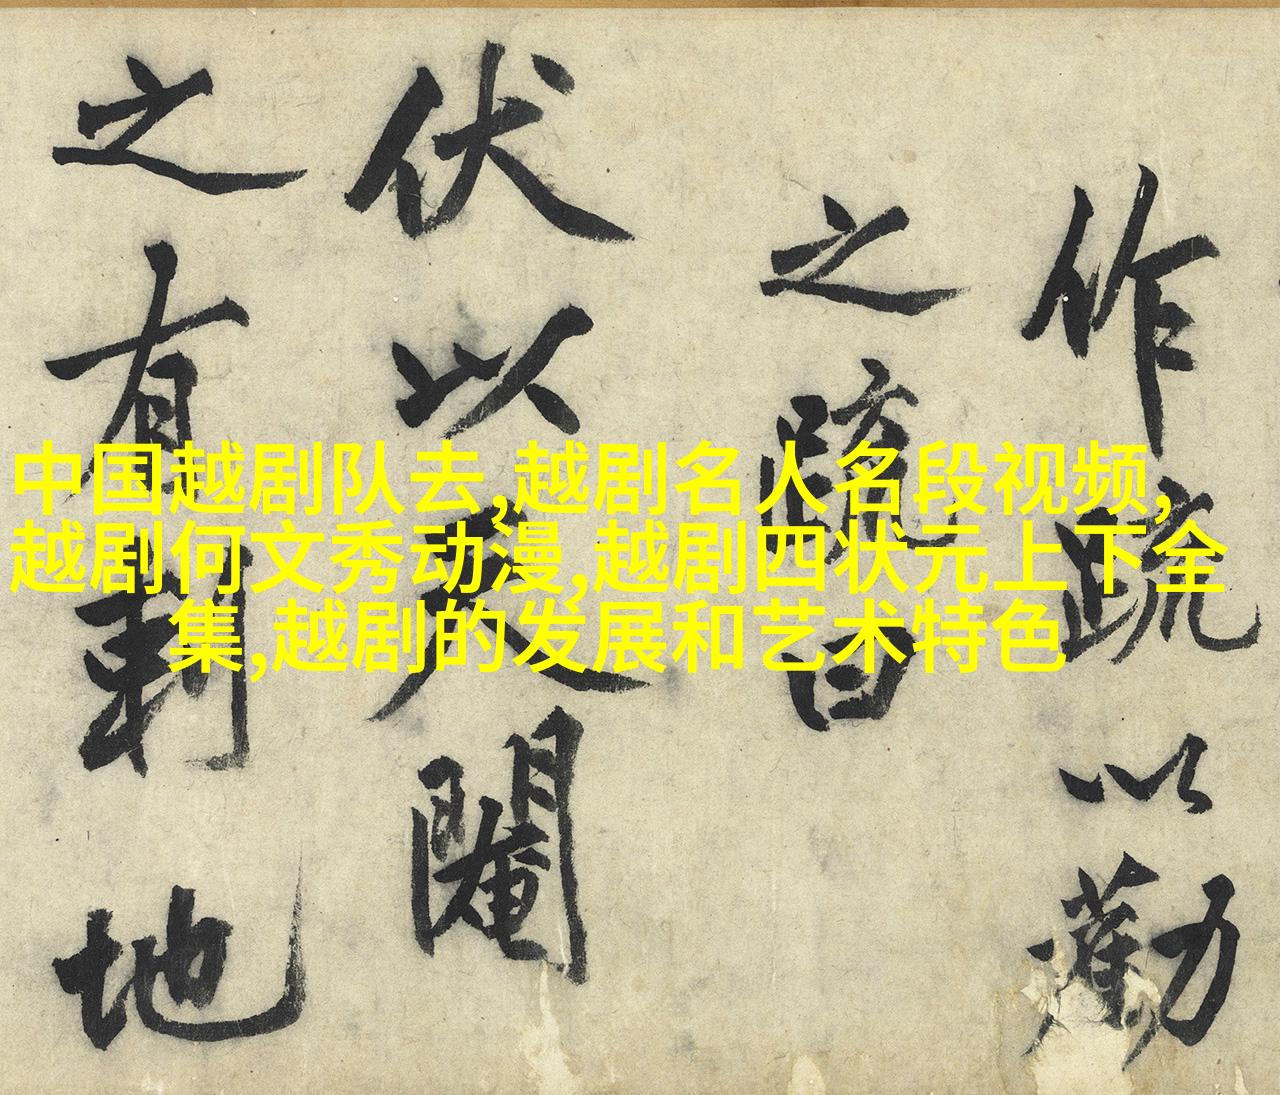 作疏以勸
之疏曰
伏以天闊
之有刹地
中国越剧队去,越剧名人名段视频,
越剧何文秀动漫,越剧四状元上下全
集,越剧的发展和艺术特色